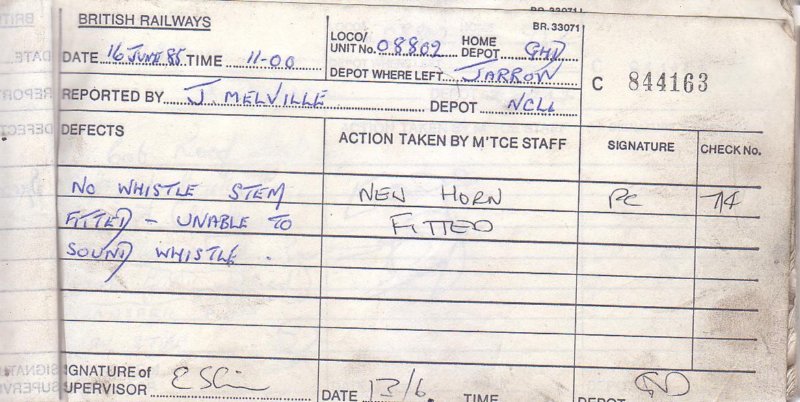 BR 33071
BRITISH RAILWAYS
BR. 33071
DATE 16 JUNE 85 TIME 11-00
LOCO/ UNIT No. 08802 HOME DEPOT GHD
DEPOT WHERE LEFT JARROW
C 844163
REPORTED BY J. MELVILLE DEPOT NCLL
DEFECTS ACTION TAKEN BY M'TCE STAFF SIGNATURE CHECK No.
NO WHISTLE STEM NEW HORN PC 74
FITTED - UNABLE TO FITTED
SOUND WHISTLE.
SIGNATURE of SUPERVISOR
DATE 13/6 TIME DEPOT